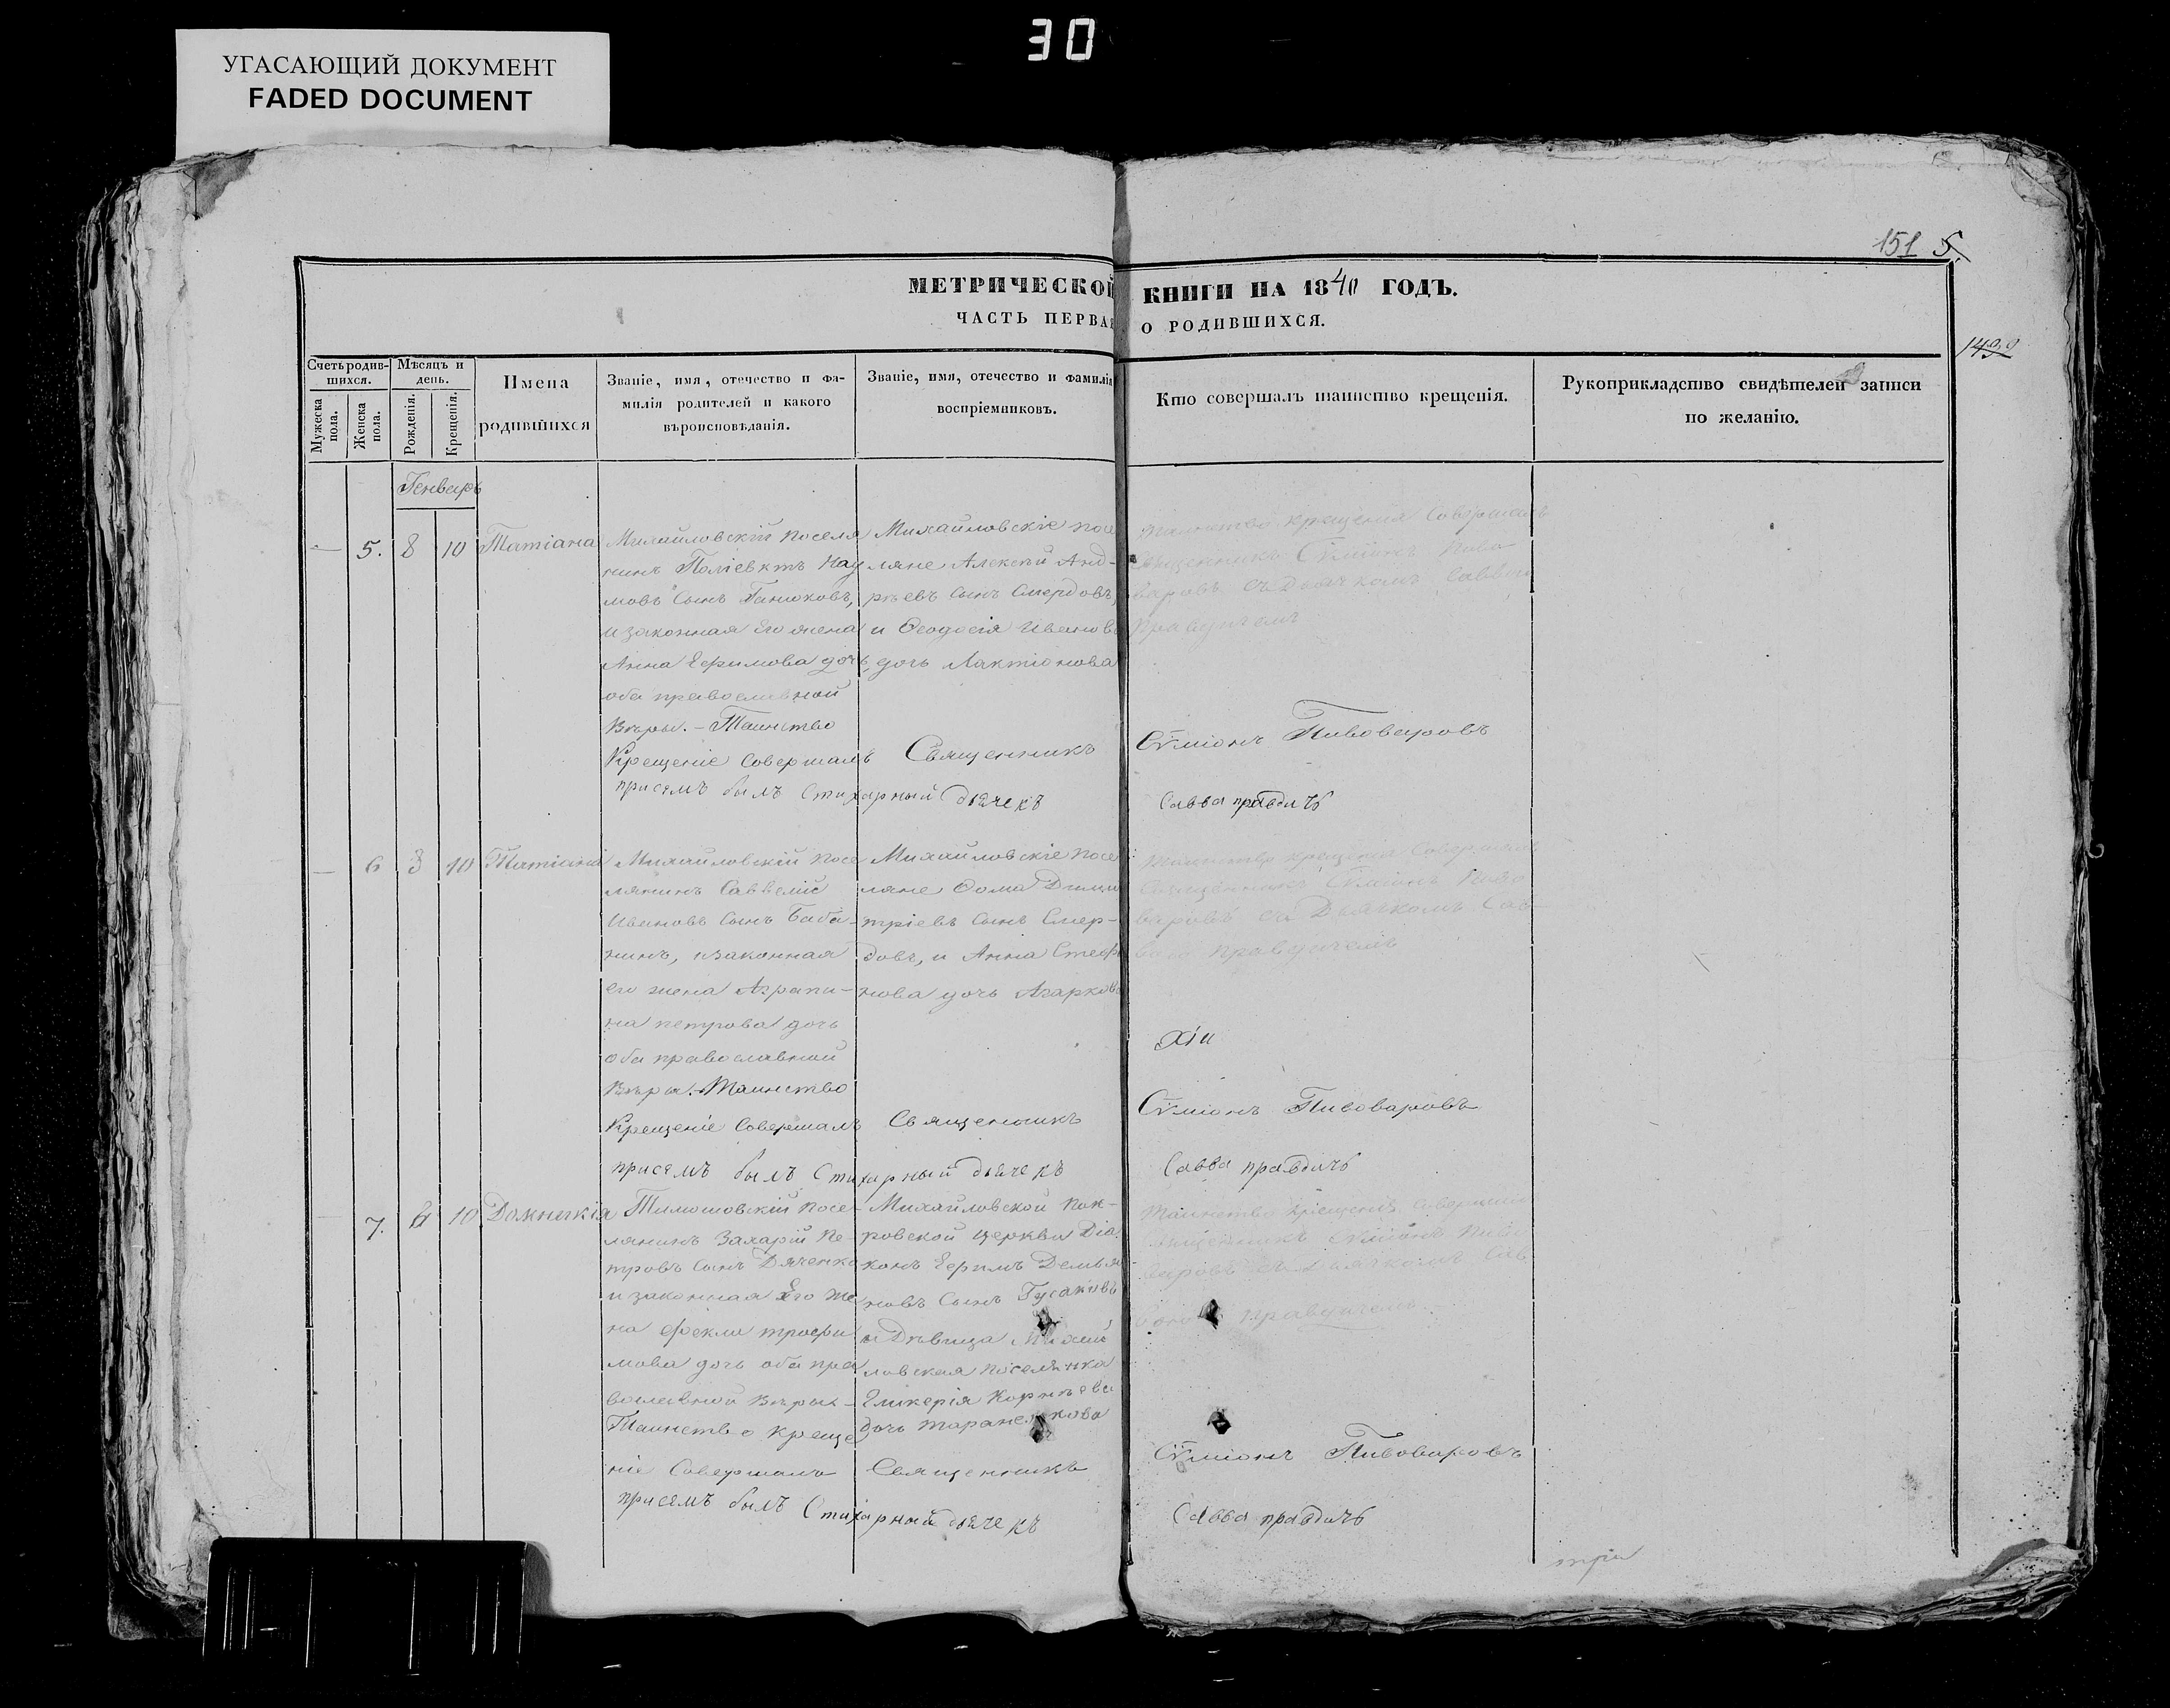 30
УГАСАЮЩИЙ ДОКУМЕНТ
FADED DOCUMENT
151 5.
МЕТРИЧЕСКОЙ КНИГИ НА 1840 ГОДЪ.
ЧАСТЬ ПЕРВАЯ О РОДИВШИХСЯ.
Счетъ родившихся.
Мужеска пола.
Женска пола.
Мѣсяцъ и день.
Рожденія.
Крещенія.
Имена
родившихся
Званіе, имя, отечество и фа-
милія родителей и какого
вѣроисповѣданія.
Званіе, имя, отечество и фамилія
воспріемниковъ.
Кто совершалъ таинство крещенія.
Рукоприкладство свидѣтелей записи
по желанію.
Генварь
— 5. 8 10 Татіана
Михайловскій поселя
нинъ Поліевктъ Нау
мовъ сынъ Ганюковъ,
и законная Его жена
Анна Ефимова дочь,
оба православной
Вѣры. – Таинство
Крещеніе Совершалъ Священникъ Сѵміонъ Пивоваровъ
присемъ былъ Стихарный дьячекъ Савва правдичъ
Михайловскіе посе
ляне Алексѣй Анд-
рѣевъ сынъ Смердовъ,
и Ѳеодосія Иванова
дочь Лактіонова
Таинство крещенія Совершалъ
Священникъ Сѵміонъ Пиво
варовъ съ Дьячкомъ Саввою
Правдичемъ
— 6 3 10 Татіана
Михайловскій посе
лянинъ Саввелій
Ивановъ сынъ Баба-
нинъ, и законная
его жена Агрипи-
на петрова дочь
оба православной
Вѣры. – Таинство
Крещеніе Совершалъ Священникъ Сѵміонъ Пивоваровъ
присемъ былъ Стихарный дьячекъ Савва правдичъ
Михайловскіе посе
ляне Ѳома Дими
тріевъ сынъ Смер-
довъ, и Анна Стефа
нова дочь Агаркова
Таинство крещенія Совершалъ
Священникъ Сѵміонъ Пиво
варовъ съ Дьячкомъ Сав-
вою Правдичемъ
— 7. 10 Домникія
Тимошовскій посе-
лянинъ Захарій Пе-
тровъ сынъ Дяченко
и законная Его же
на Фекла трофи
мова дочь оба пра
вославной Вѣры –
Таинство креще
ніе Совершалъ Священникъ Сѵміонъ Пивоваровъ
присемъ былъ Стихарный дьячекъ Савва правдичъ
Михайловской Пок-
ровской церкви Діа
конъ Ефимъ Демья
новъ Сынъ Гусаковъ
и Дѣвица Михай
ловская поселянка
Гликерія Корнѣева
дочь
Таинство крещенія Совершалъ
Священникъ Сѵміонъ Пиво
варовъ съ Дьячкомъ Сав
вою Правдичемъ
три